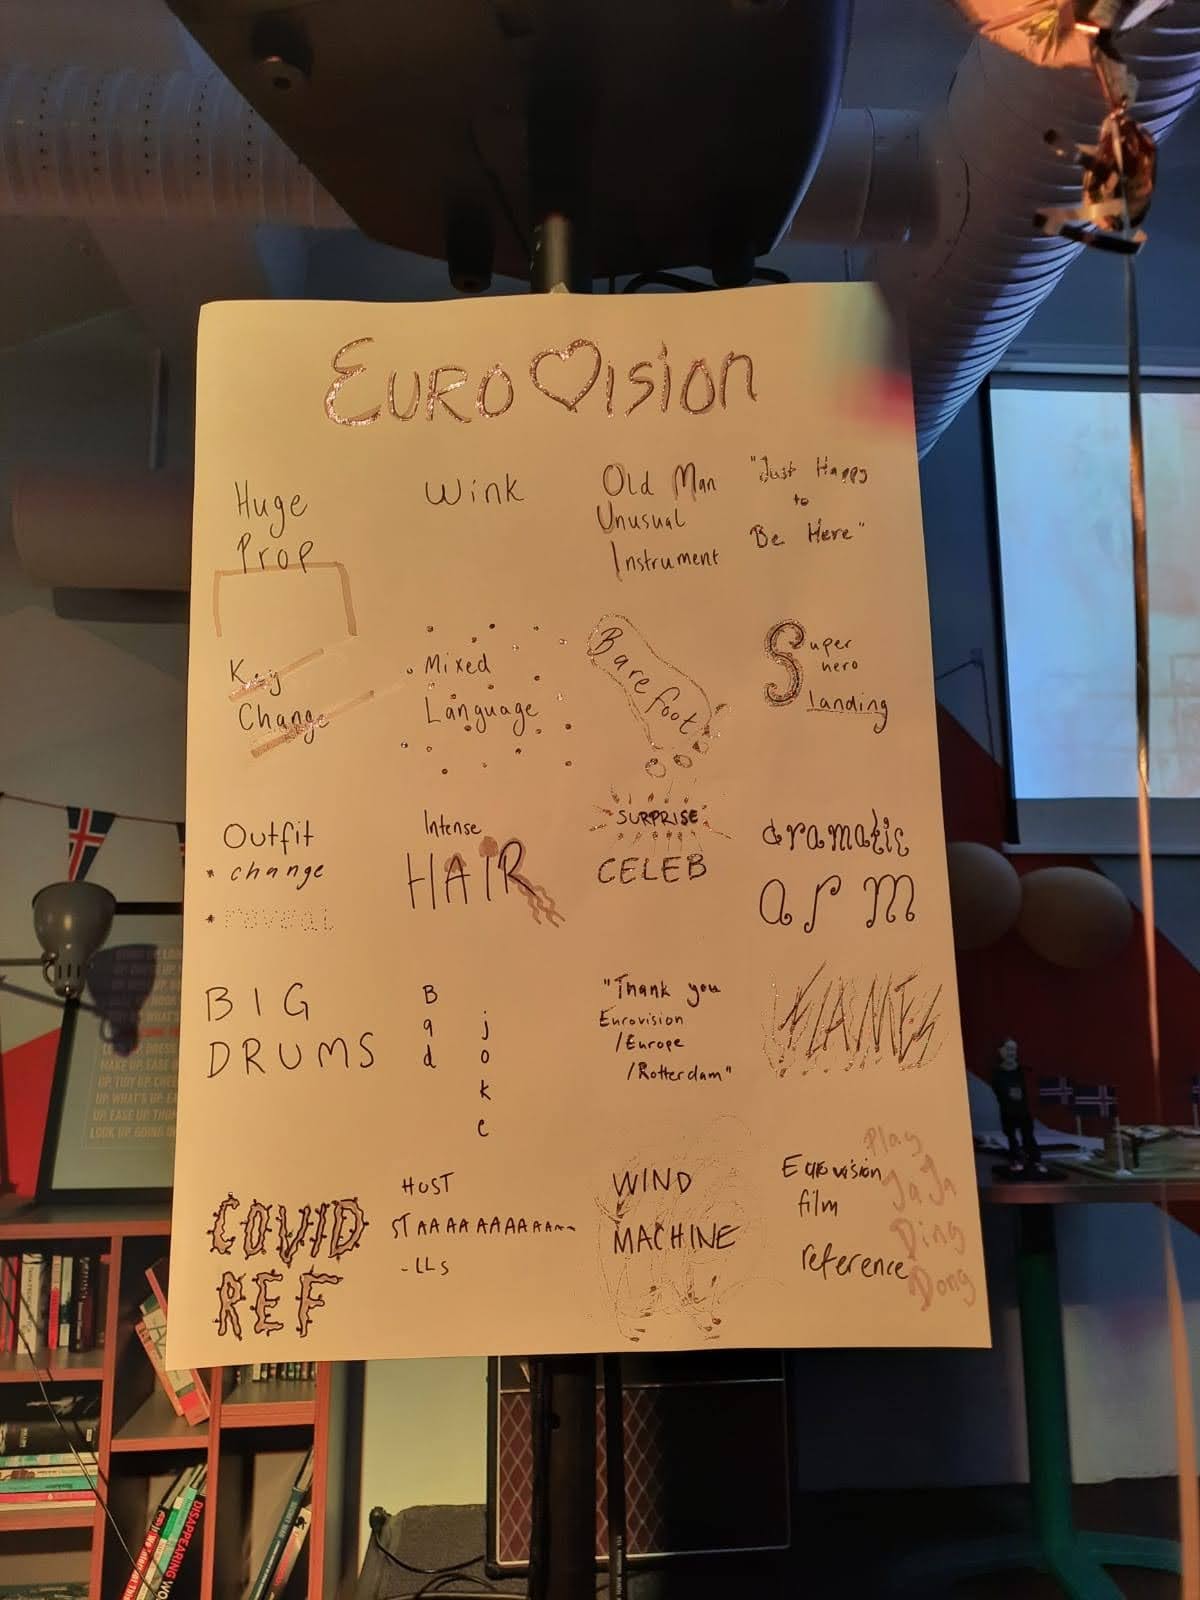 EUROVISION
Huge
Prop
Wink
Old Man
Unusual
Instrument
"Just Happy
to
Be Here"
Key
Change
Mixed
Language
Barefoot
Super
hero
landing
Outfit
* change
* reveal
Intense
HAIR
SURPRISE
CELEB
dramatic
arm
BIG
DRUMS
Bad
joke
"Thank you
Eurovision
/Europe
/Rotterdam"
FLAMES
COVID
REF
HOST
STAAAAAAAAAAA
-LLS
WIND
MACHINE
Eurovision
film
reference
Play
JaJa
Ding
Dong
DISAPPEARING